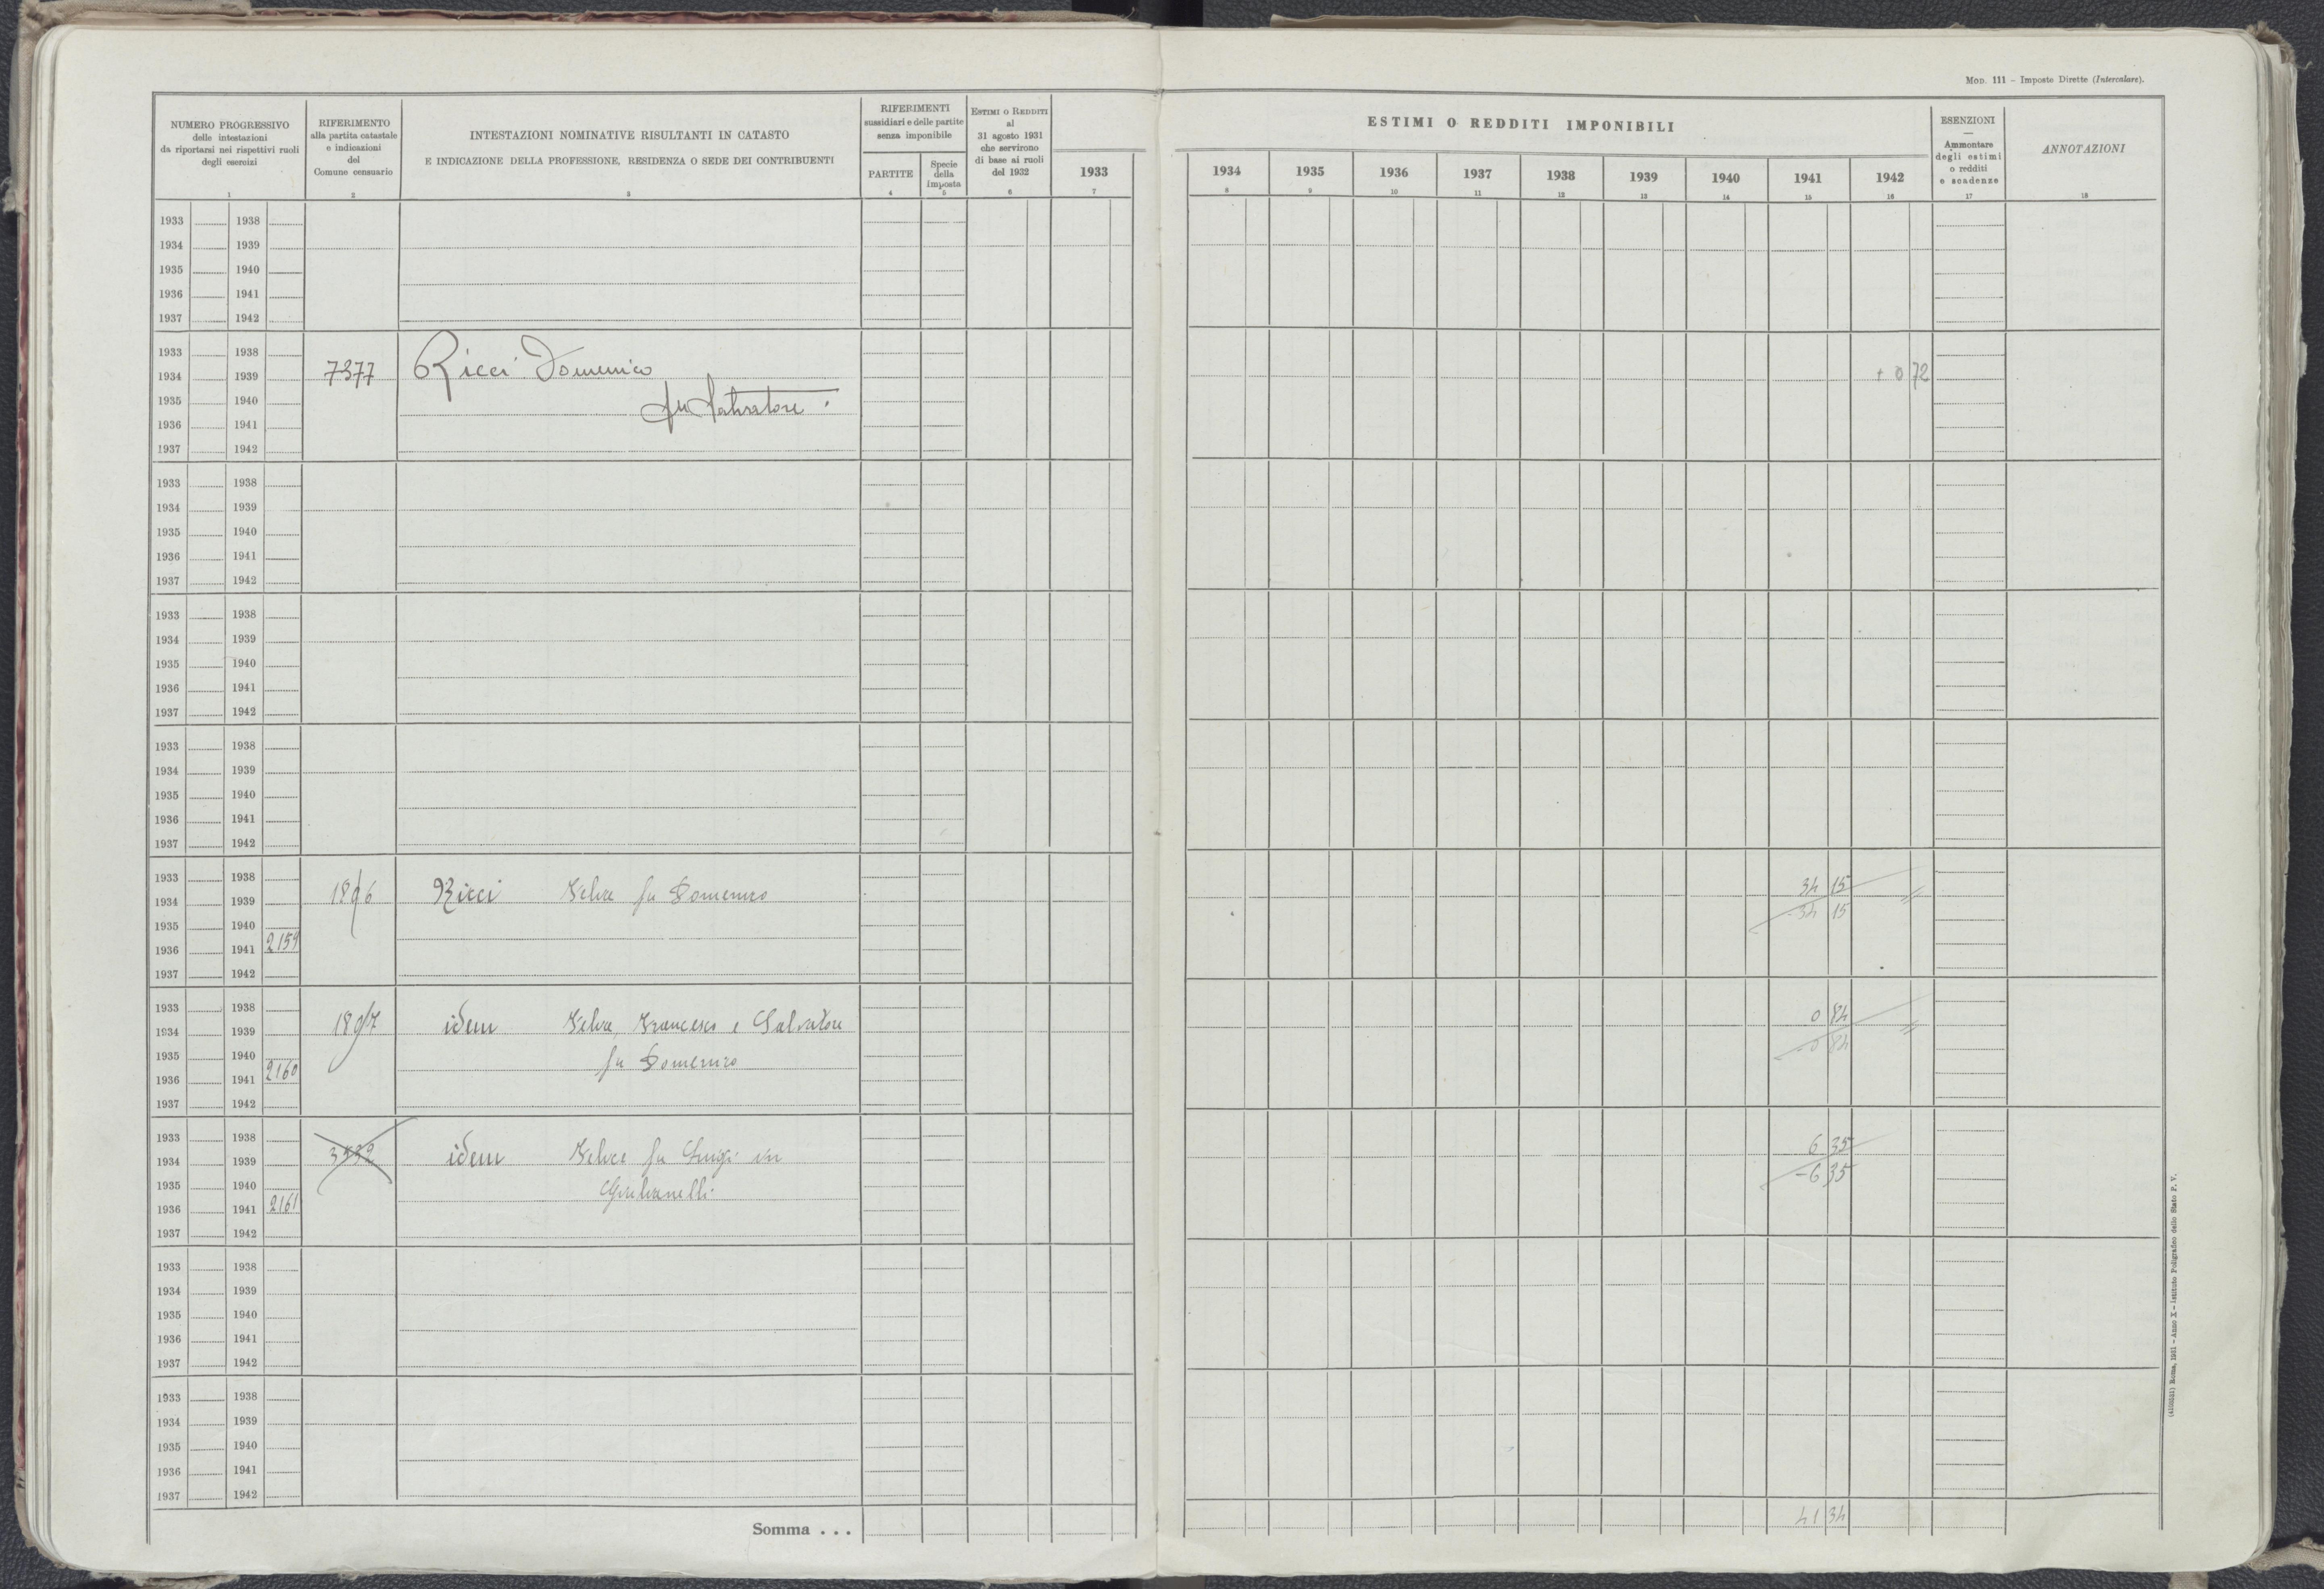 MOD. 111 – Imposte Dirette (Intercalare).
NUMERO PROGRESSIVO
delle intestazioni
da riportarsi nei rispettivi ruoli
degli esercizi
1
RIFERIMENTO
alla partita catastale
e indicazioni
del
Comune censuario
2
INTESTAZIONI NOMINATIVE RISULTANTI IN CATASTO
E INDICAZIONE DELLA PROFESSIONE, RESIDENZA O SEDE DEI CONTRIBUENTI
3
RIFERIMENTI
sussidiari e delle partite
senza imponibile
PARTITE
4
Specie
della
imposta
5
ESTIMI O REDDITI
al
31 agosto 1931
che servirono
di base ai ruoli
del 1932
6
1933
7
ESTIMI O REDDITI IMPONIBILI
1934 1935 1936 1937 1938 1939 1940 1941 1942
8 9 10 11 12 13 14 15 16
ESENZIONI
—
Ammontare
degli estimi
o redditi
e scadenze
17
ANNOTAZIONI
18
1933 1938
1934 1939
1935 1940
1936 1941
1937 1942
1933 1938
1934 1939 7377 Ricci Domenico + 0 72
1935 1940 fu Salvatore
1936 1941
1937 1942
1933 1938
1934 1939
1935 1940
1936 1941
1937 1942
1933 1938
1934 1939
1935 1940
1936 1941
1937 1942
1933 1938
1934 1939
1935 1940
1936 1941
1937 1942
1933 1938 34 15
1934 1939 1896 Ricci fu Domenico - 34 15
1935 1940
1936 1941 2159
1937 1942
1933 1938 0 84
1934 1939 1897 idem Francesco e Salvatore - 0 84
1935 1940 fu Domenico
1936 1941 2160
1937 1942
1933 1938 6 35
1934 1939 idem fu Luigi in - 6 35
1935 1940
1936 1941 2161
1937 1942
1933 1938
1934 1939
1935 1940
1936 1941
1937 1942
1933 1938
1934 1939
1935 1940
1936 1941
1937 1942
Somma . . . 41 34
Roma, 1931 – Anno X – Istituto Poligrafico dello Stato P. V.